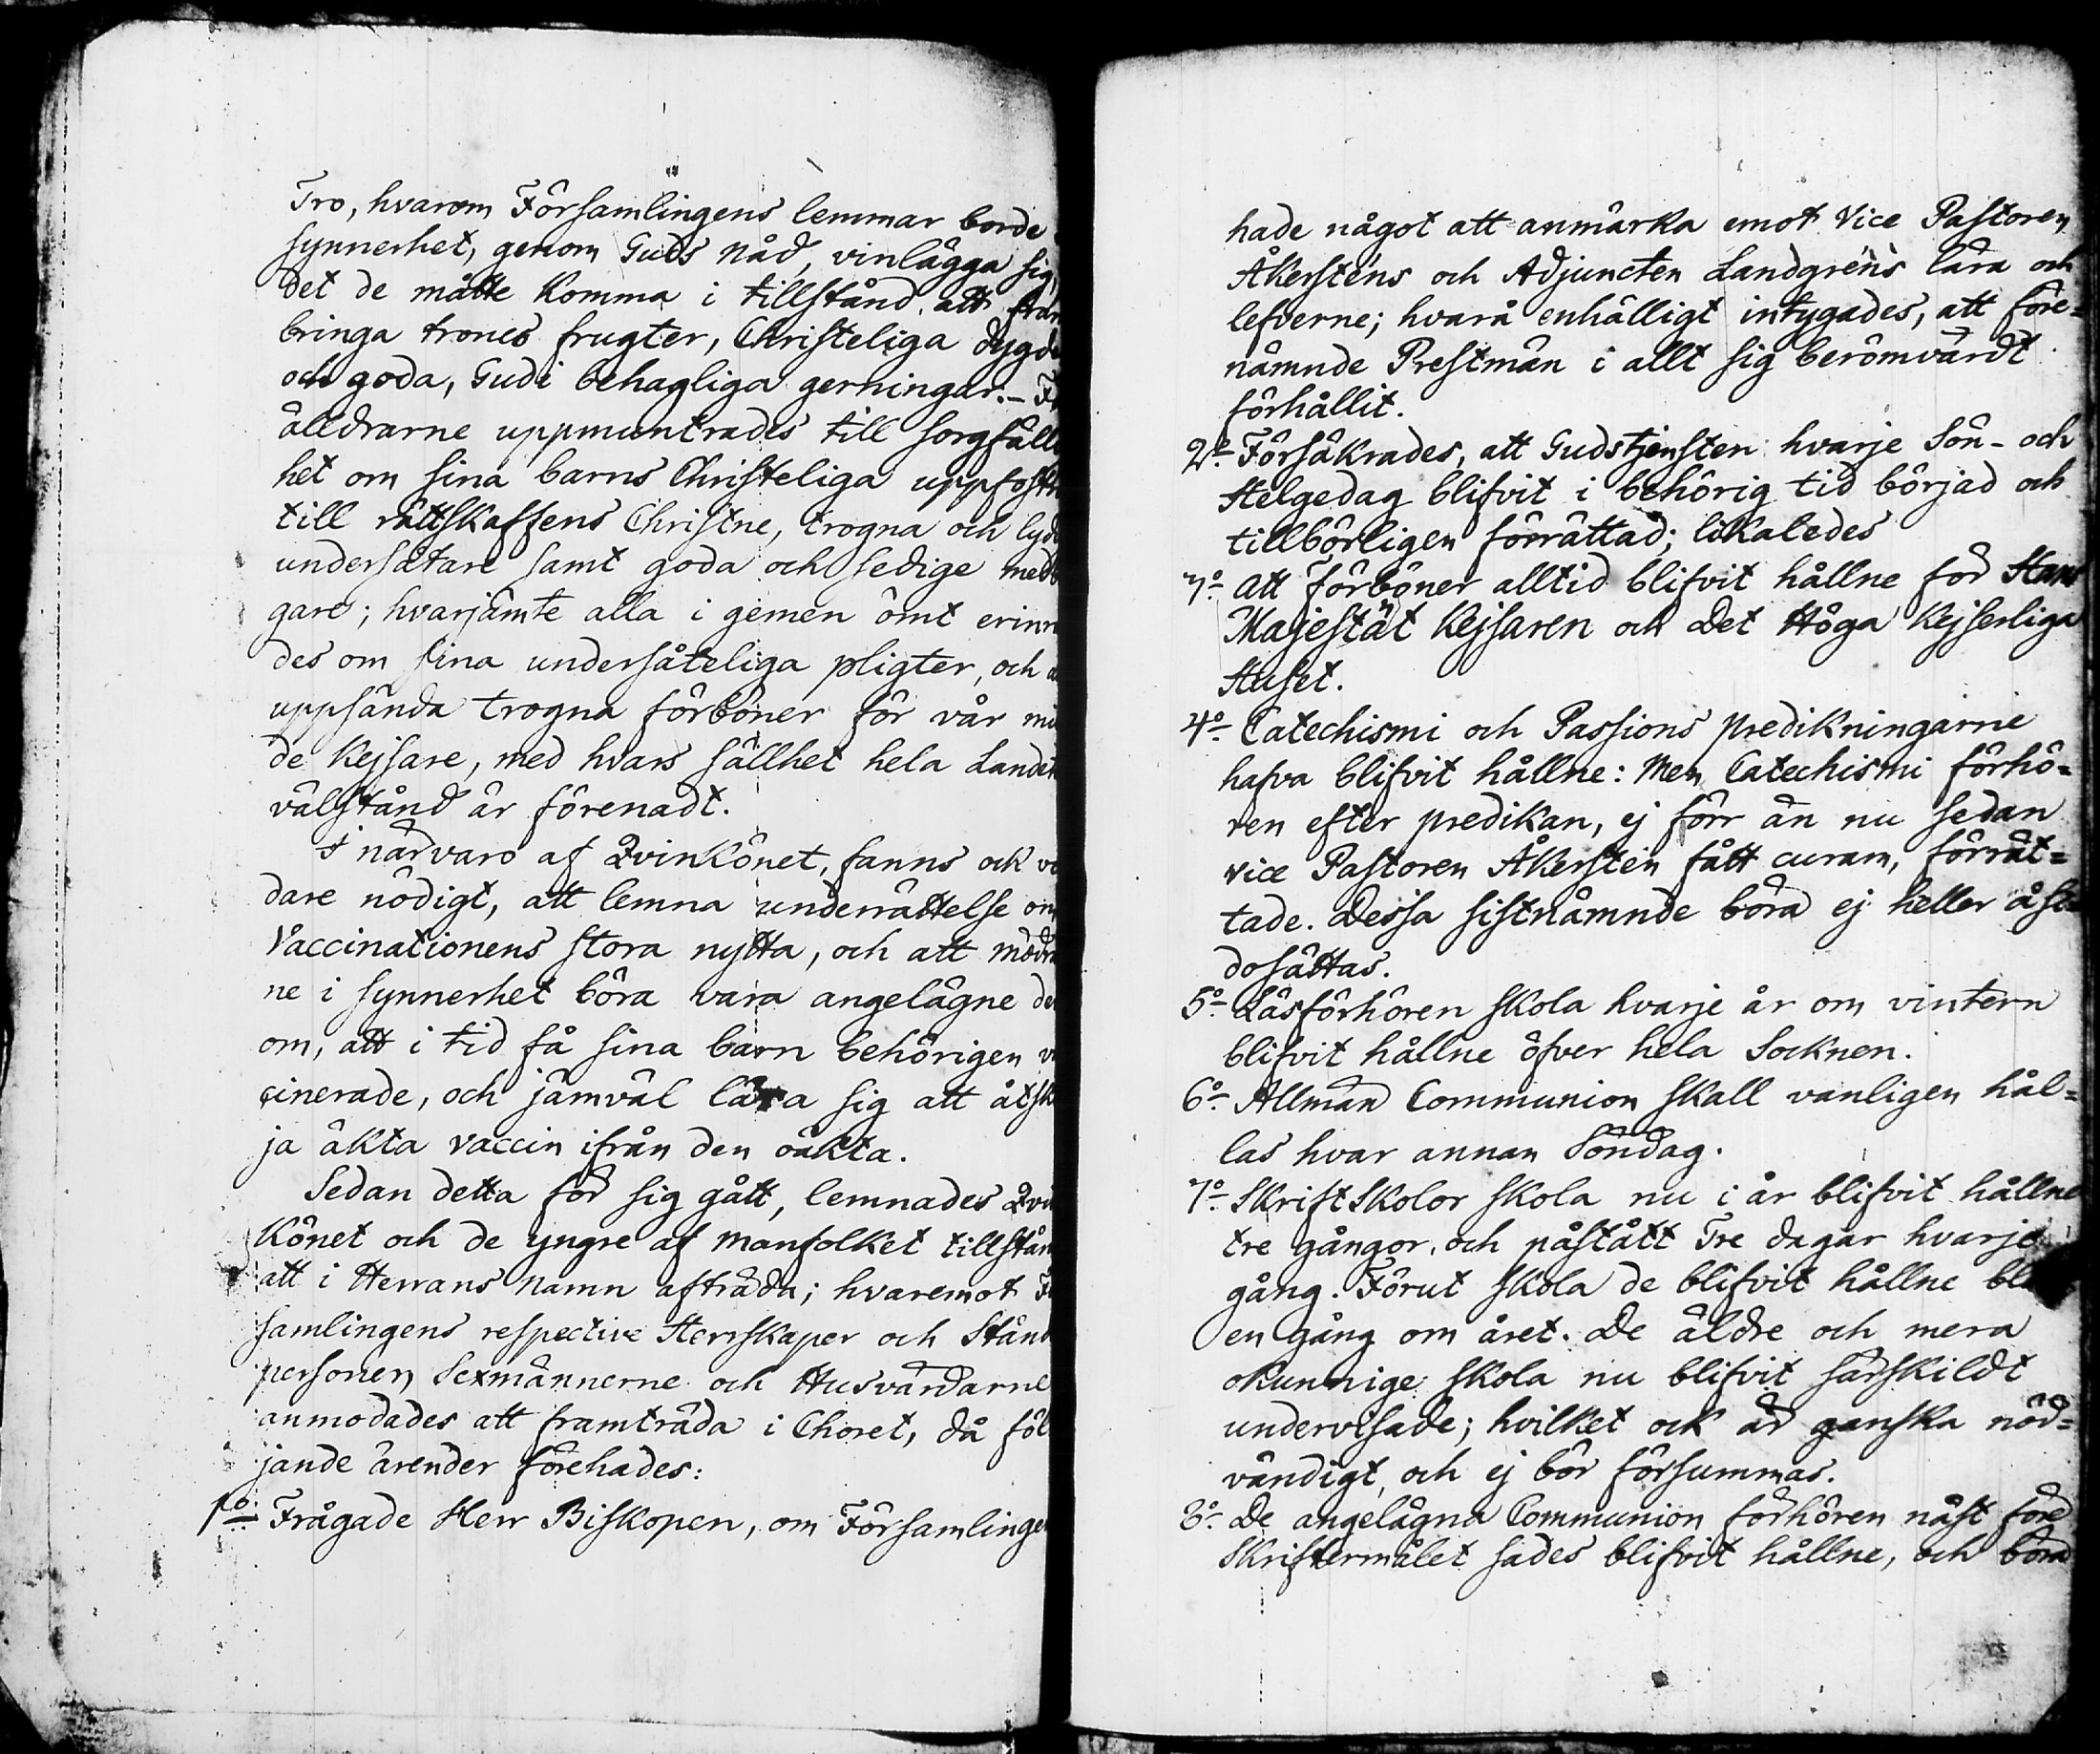 Tro, hvarom Församlingens lemmar borde
synnerhet, genom Guds Nåd, vinlägga sig,
det de måtte komma i tillstånd, att fram
bringa trones frugter, Christeliga dygde
och goda, Gudi behagliga gerningar. – Fö
älldrarne uppmuntrades till sorgfälli
het om sina barns Christeliga uppfostr
till rättskaffens Christne, trogna och lyd
undersåtare samt goda och sedige medb
gare; hvarjämte alla i gemen ömt erinra
des om sina undersåteliga pligter, och a
uppsända trogna förböner för vår mil
de Kejsare, med hvars sällhet hela Landets
välstånd är förenadt.
I närvaro af Qvinkönet, fanns ock vi
dare nödigt, att lemna underrättelse om
Vaccinationens stora nytta, och att mödra
ne i synnerhet böra vara angelägne der
om, att i tid få sina barn behörigen va
cinerade, och jämväl lära sig att åtskil
ja äkta vaccin ifrån den oäkta.
Sedan detta för sig gått, lemnades Qvin
könet och de yngre af manfolket tillstånd
att i Herrans Namn afträda; hvaremot Fö
samlingens respective Herrskaper och Stånds
personer, Sexmännerne och Husvärdarne
anmodades att framträda i Choret, då föl
jande ärender förehades:
1º Frågade Herr Biskopen, om Församlingen
hade något att anmärka emot Vice Pastoren
Åkerstens och Adjuncten Landgrens lära och
lefverne; hvarå enhälligt intygades, att före=
nämnde Prestmän i allt sig berömvärdt
förhållit.
2º Försäkrades, att Gudstjensten hvarje Sön- och
Helgedag blifvit i behörig tid börjad och
tillbörligen förrättad; likaledes
3º att förböner alltid blifvit hållne för Hans
Majestät Kejsaren och Det Höga Kejserliga
Huset.
4º Catechismi och Passions predikningarne
hafva blifvit hållne: Men Catechismi förhö=
ren efter predikan, ej förr än nu sedan
vice Pastoren Åkersten fått curam, förrät=
tade. Dessa sistnämnde böra ej heller åsi
dosättas.
5º Läsförhören skola hvarje år om vintern
blifvit hållne öfver hela Socknen.
6º Allmän Communion skall vanligen hål=
las hvar annan Söndag.
7º Skrift Skolor skola nu i år blifvit hållne
tre gångor, och påstått Tre dagar hvarje
gång. Förut skola de blifvit hållne
en gång om året. De äldre och mera
okunnige skola nu blifvit särskildt
undervisade; hvilket ock är ganska nöd=
vändigt, och ej bör försummas.
8º De angelägna Communion förhören näst före
Skriftermålet sades blifvit hållne, och böra